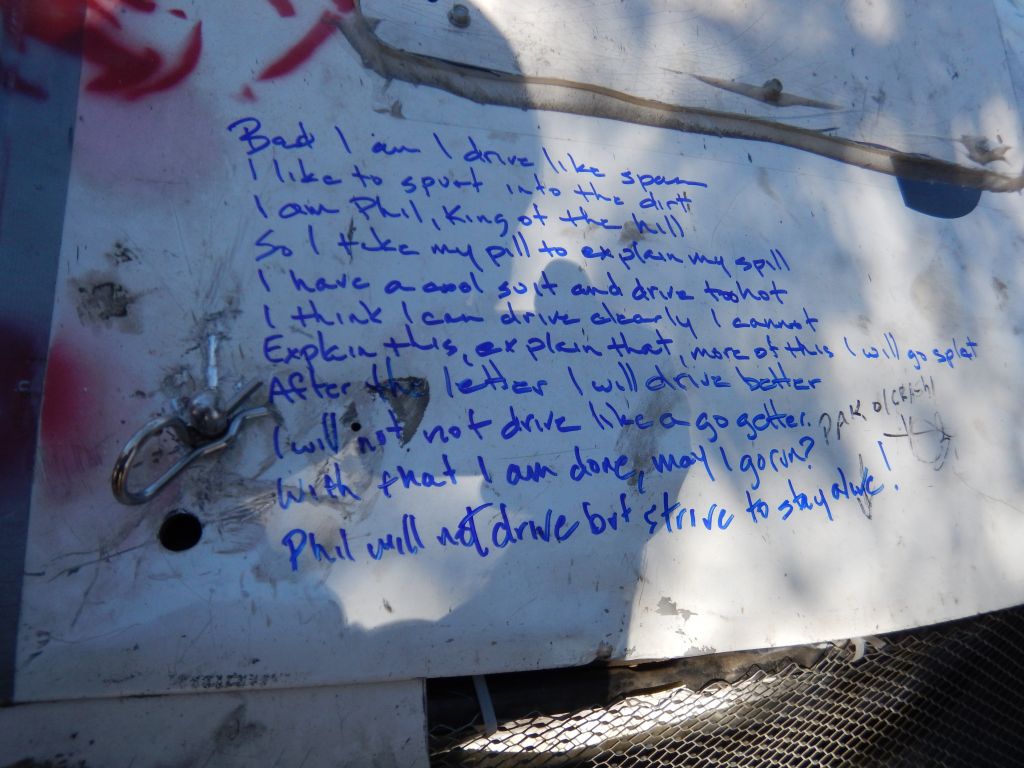 Bad I am I drive like spam
I like to spurt into the dirt
I am Phil, King of the hill
So I take my pill to explain my spill
I have a cool suit and drive too hot
I think I can drive clearly I cannot
Explain this, explain that, more of this I will go splat
After the letter I will drive better
I will not not drive like a go getter.
With that I am done, may I go run?
Phil will not drive but strive to stay alive!